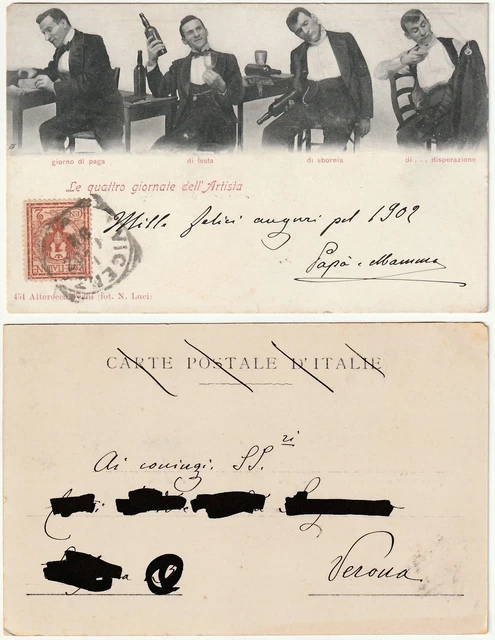 giorno di paga
di festa
di sbornia
di... disperazione
Le quattro giornate dell'Artista
Mille felici auguri pel 1902
Papà e Mamma
454 Alterocca, (fot. N. Luci)
CARTE POSTALE D'ITALIE
Ai coniugi. SS.ri
Verona